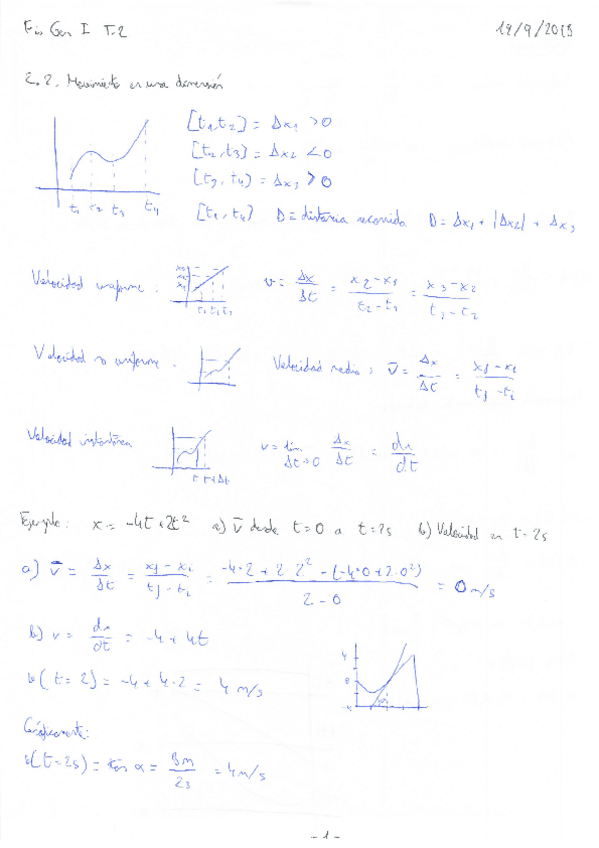 Fis Gen I T.2
19/9/2013
2.2. Movimiento en una dimensión
[t₁,t₂] = Δx₁ > 0
[t₂,t₃] = Δx₂ < 0
[t₃,t₄] = Δx₃ > 0
t₁ t₂ t₃ t₄
[t₁,t₄] D = distancia recorrida D = Δx₁ + |Δx₂| + Δx₃
Velocidad uniforme : x₃ x₂ x₁ t₁ t₂ t₃ v = Δx/Δt = (x₂-x₁)/(t₂-t₁) = (x₃-x₂)/(t₃-t₂)
Velocidad no uniforme . Velocidad media : v̄ = Δx/Δt = (xf-xi)/(tf-ti)
Velocidad instantánea t t+Δt v = lim Δt→0 Δx/Δt = dx/dt
Ejemplo: x = -4t+2t² a) v̄ desde t=0 a t=2s b) Velocidad en t=2s
a) v̄ = Δx/Δt = (xf-xi)/(tf-ti) = (-4·2+2·2²-(-4·0+2·0²))/(2-0) = 0 m/s
b) v = dx/dt = -4+4t
v(t=2) = -4+4·2 = 4 m/s
Gráficamente:
v(t=2s) = tan α = 8m/2s = 4m/s
-1-